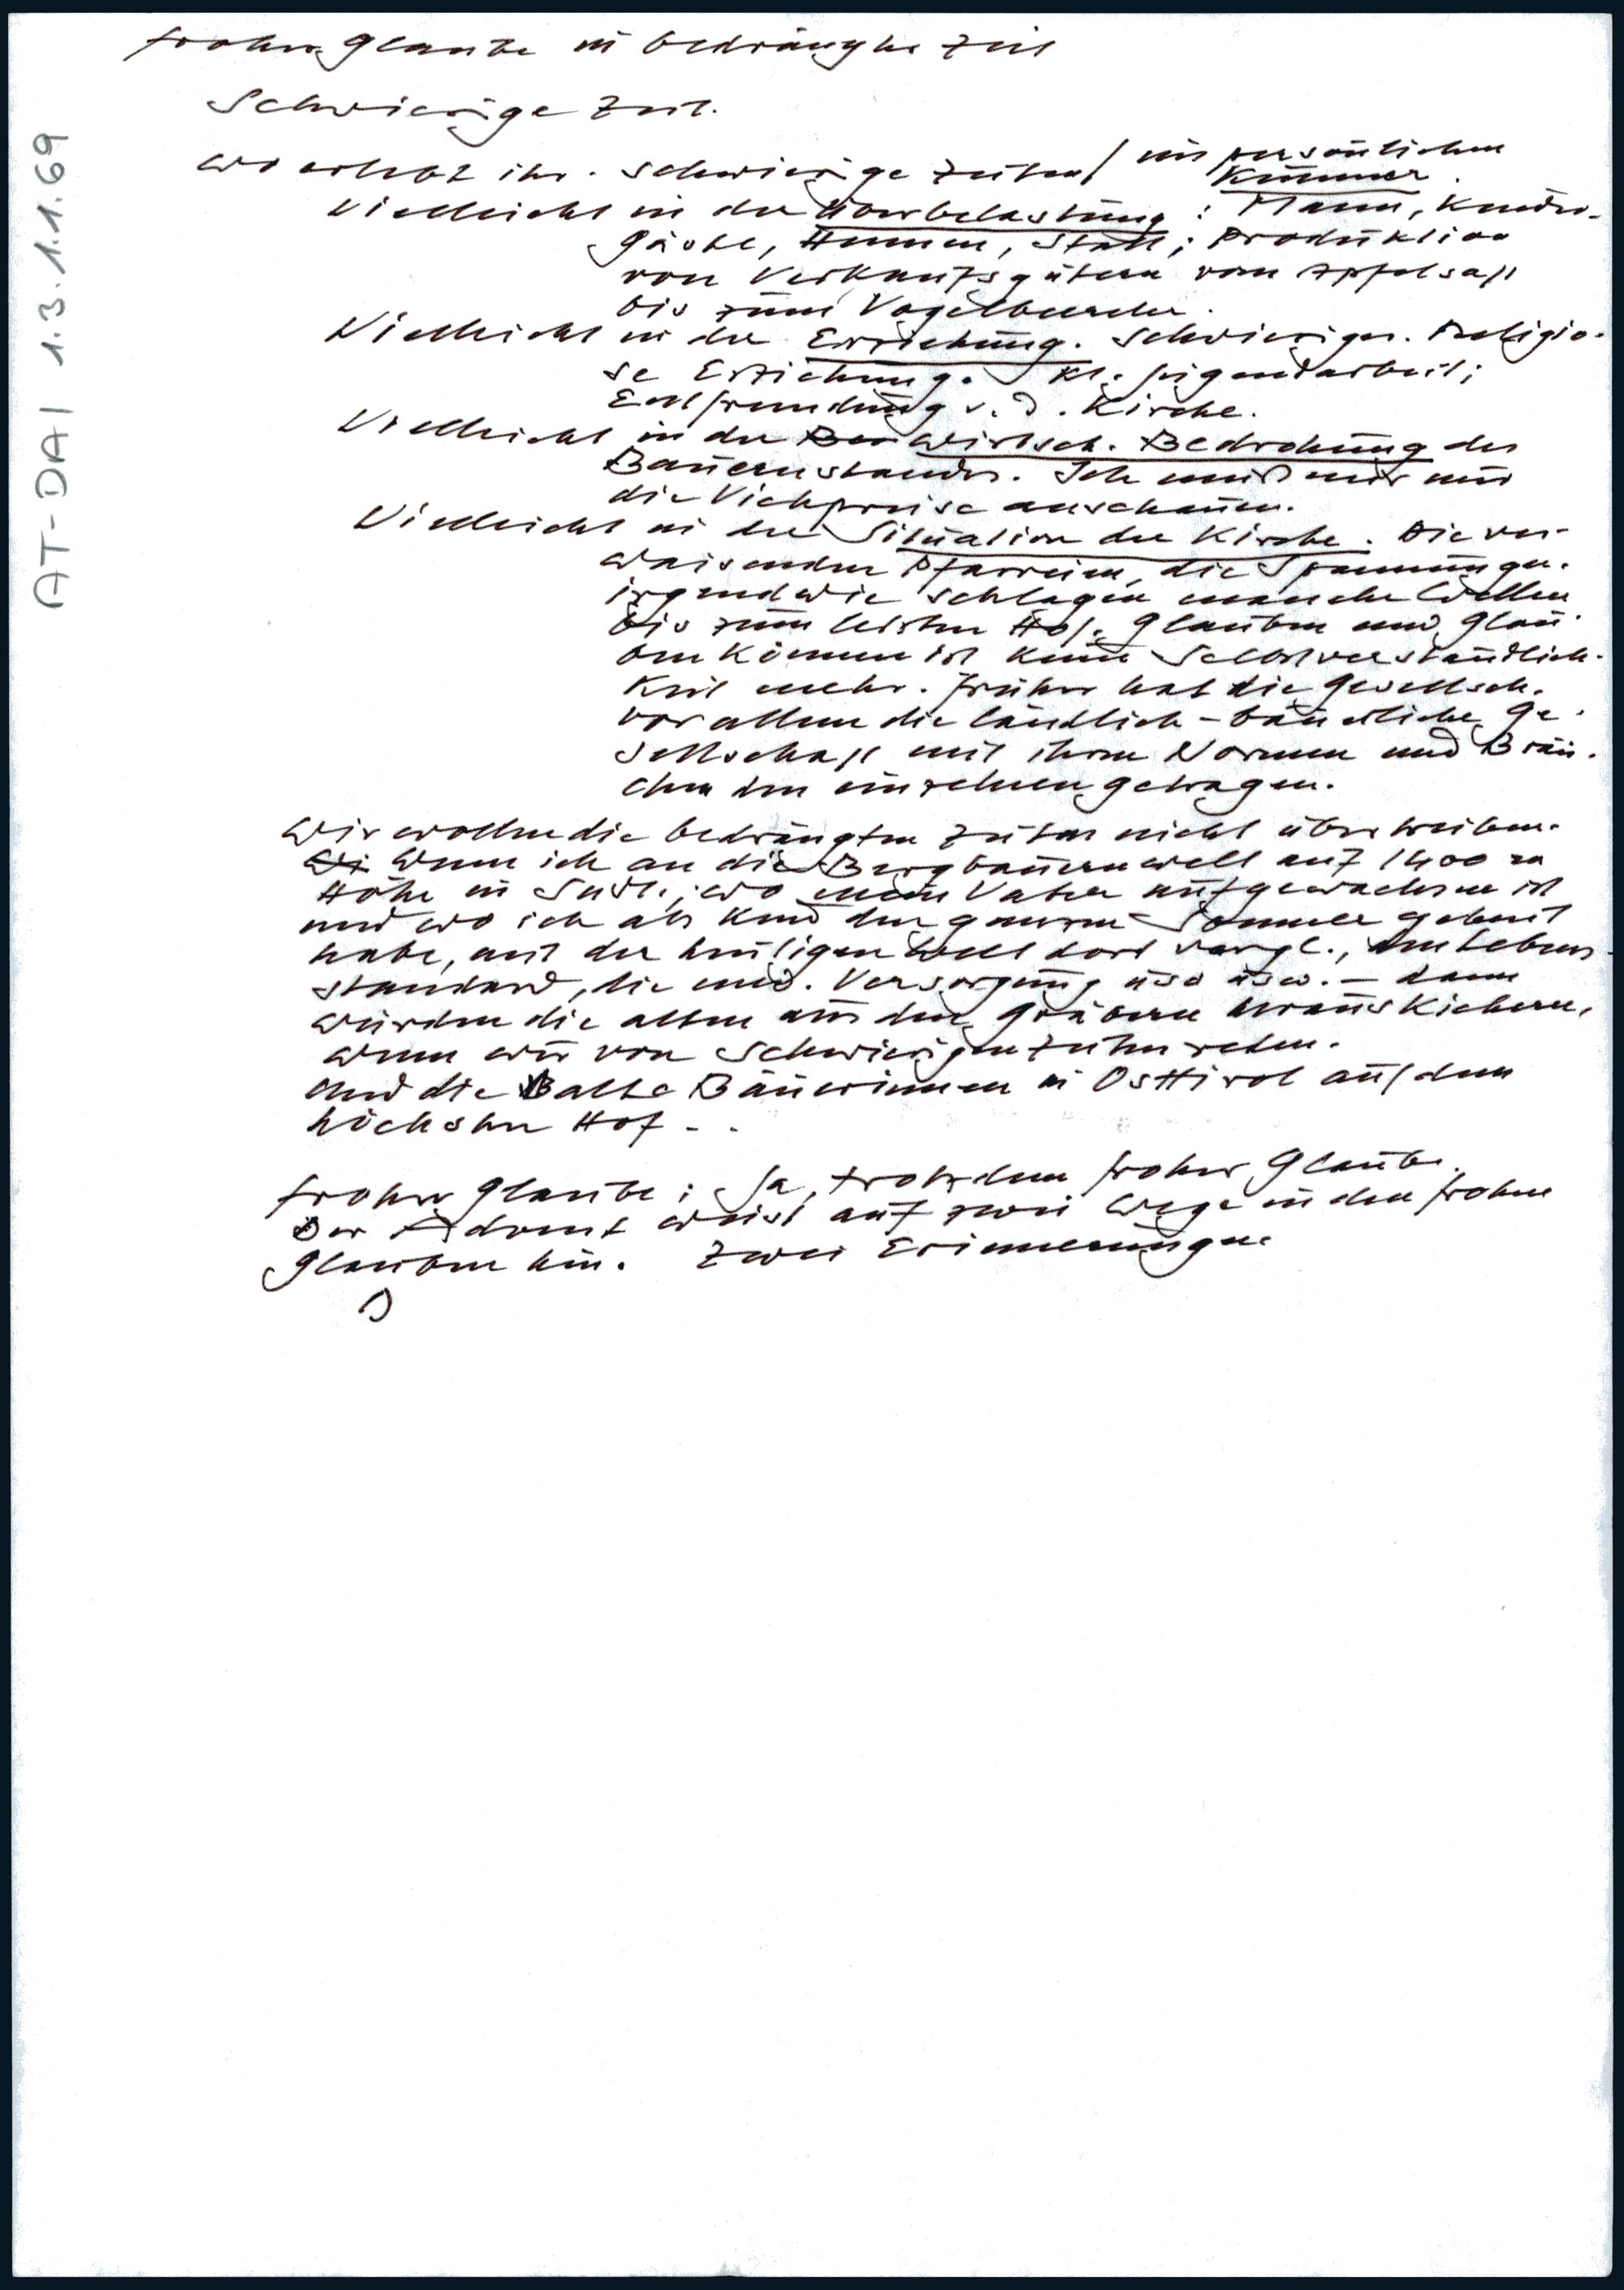 AT-DAI 1.3.1.1.69
Froher Glaube in bedrängter Zeit
Schwierige Zeit.
Wo erlebt ihr schwierige Zeiten/ im persönlichen
Kummer.
Vielleicht in der Überbelastung: Mann, Kinder,
Gäste, Hennen, Stall; Produktion
von Verkaufsgütern vom Apfelsaft
bis zum Vogelbeerler.
Vielleicht in der Erziehung. Schwieriger. Religiö-
se Erziehung. Kl. Jugendarbeit;
Entfremdung v. d. Kirche.
Vielleicht in der Be wirtsch. Bedrohung des
Bauernstandes. Ich muß mir nur
die Viehpreise anschauen.
Vielleicht in der Situation der Kirche. Die ver-
waisenden Pfarreien, die Spannungen.
irgendwie schlagen manche Wellen
bis zum letzten Hof. Glauben und Glau-
ben können ist keine Selbstverständlich-
keit mehr. Früher hat die Gesellsch.
vor allem die ländlich-bäuerliche Ge-
sellschaft mit ihren Normen und Bräu-
chen den einzelnen getragen.
Wir wollen die bedrängten Zeiten nicht übertreiben.
Wi Wenn ich an die Bergbauernwelt auf 1400 m
Höhe in Südt., wo mein Vater aufgewachsen ist
und wo ich als Kind den ganzen Sommer geheut
habe, mit der heutigen Welt dort vergl., den Lebens-
standard, die med. Versorgung usw usw. – dann
würden die alten aus den Gräbern herauskichern,
wenn wir von schwierigen Zeiten reden.
Und die alte Bäuerinnen in Osttirol auf dem
höchsten Hof - .
Froher Glaube: Ja, trotzdem froher Glaube.
Der Advent weist auf zwei Wege in den frohen
Glauben hin. Zwei Erinnerungen